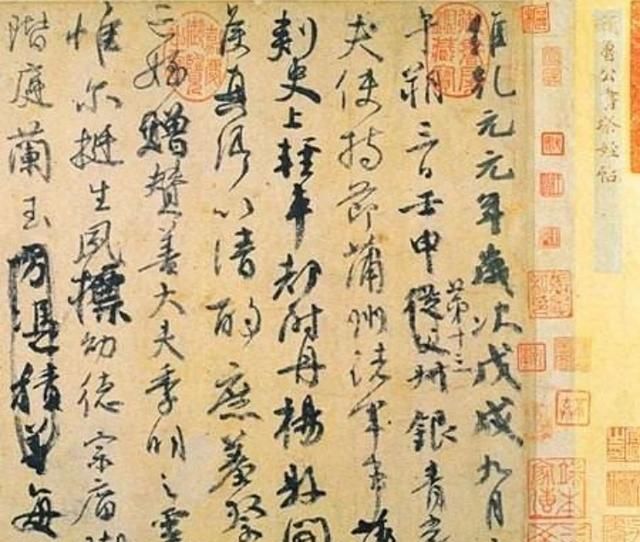 魯公書祭姪帖
維乾元元年歲次戊戌九月
午朔三日壬申第十三從父銀青光
夫使持節蒲州諸軍事蒲
刺史上輕車都尉丹楊縣開
侯真卿以清酌庶羞祭
亡姪贈贊善大夫季明之靈
惟爾挺生夙標幼德宗廟瑚
階庭蘭玉方憑積善每